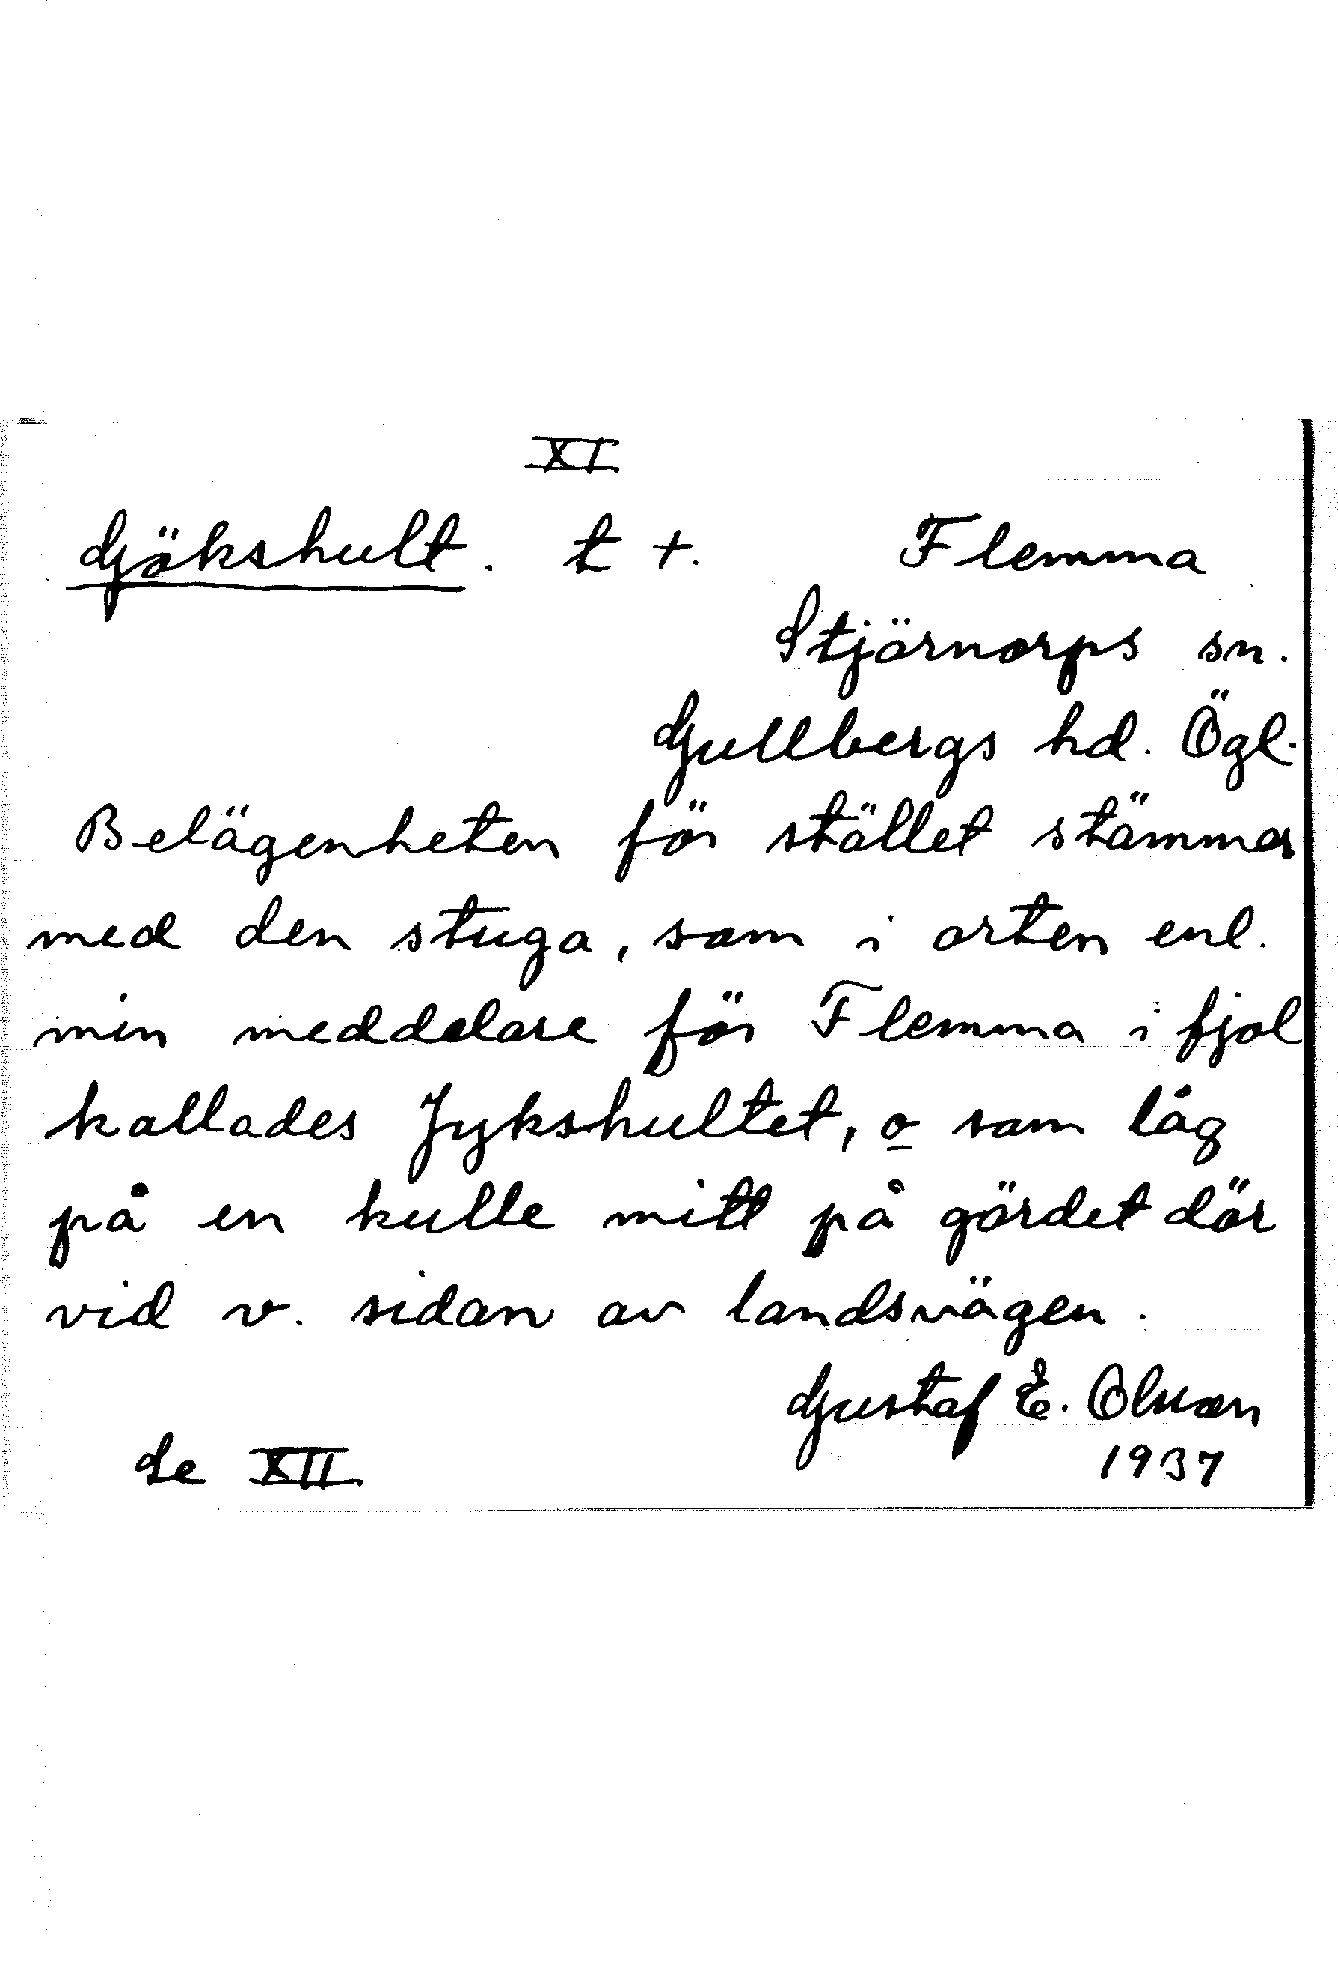 XI
Gjökshult. t +. Flemma
Stjärnorps sn.
Gullbergs hd. Ögl.
Belägenheten för stället stämmer
med den stuga, som i orten enl.
min meddelare för Flemma i fjol
kallades Jykshultet, o som låg
på en kulle mitt på gärdet där
vid v. sidan av landsvägen.
Gustaf E. Olsson
Se XII 1937